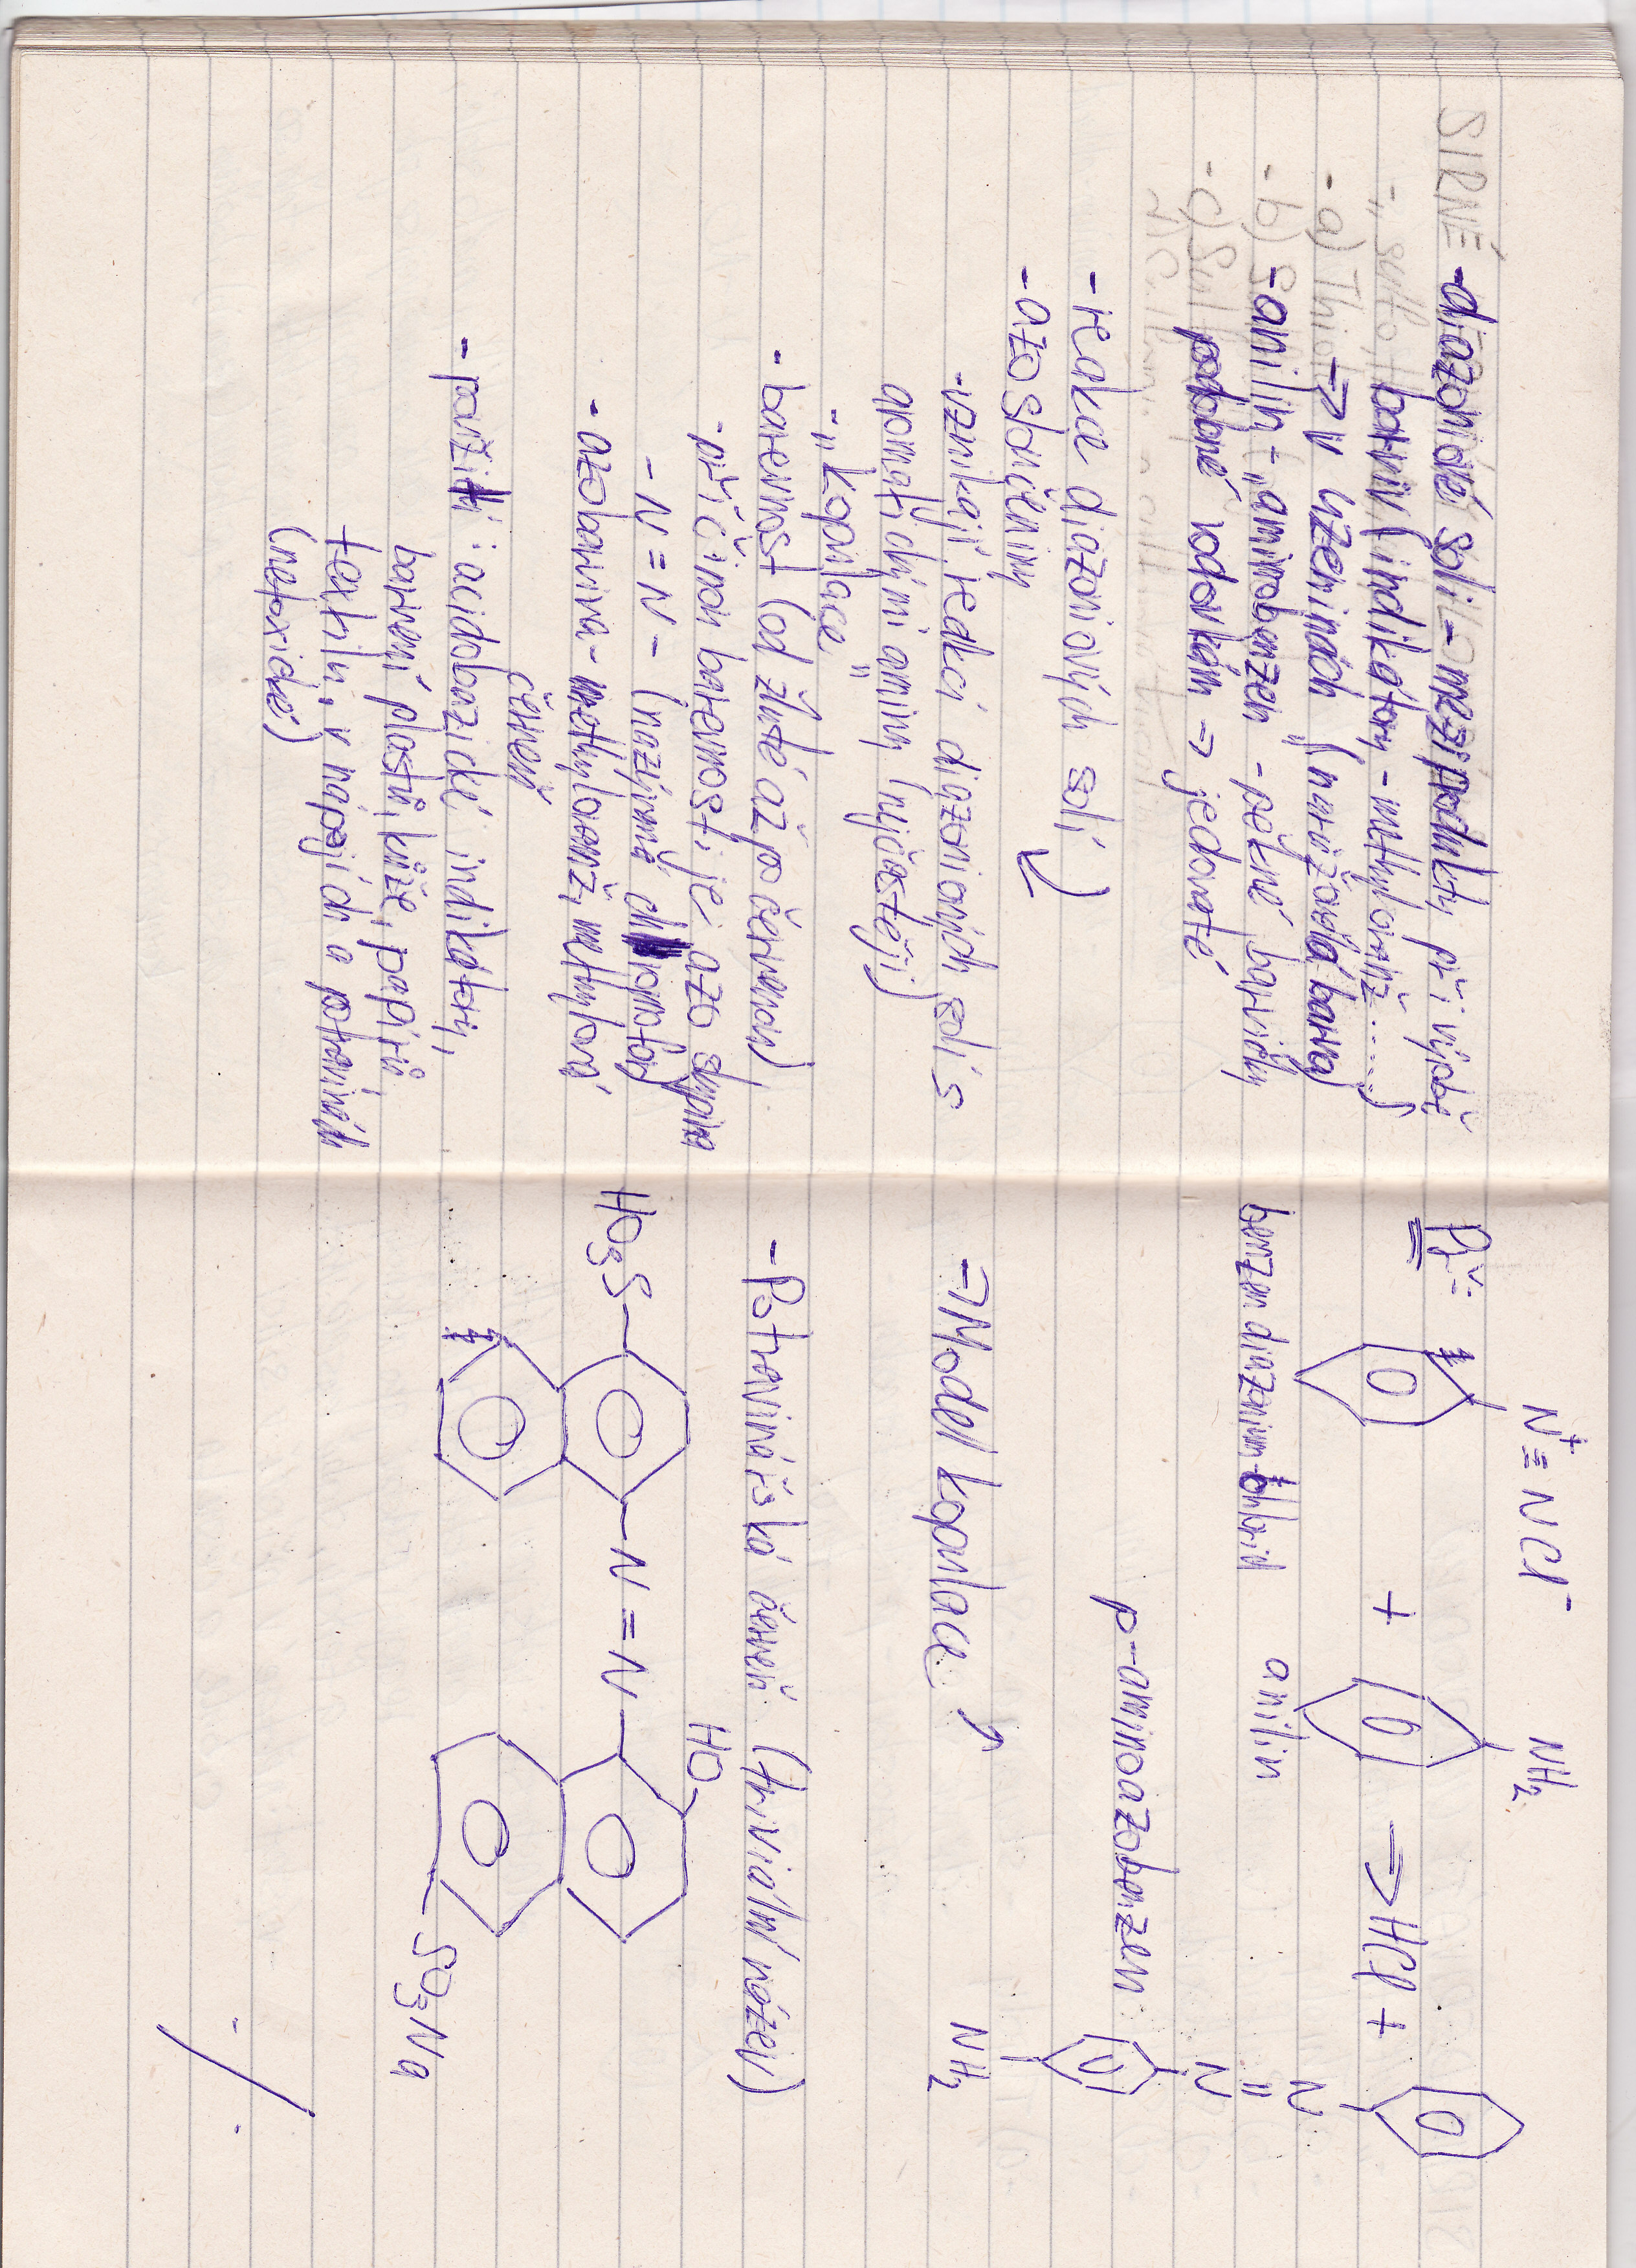 - diazoniové soli - meziprodukty při výrobě
barviv (indikátory - methyloranž.....)
⇒ v uzeninách (narůžovělá barva)
- anilin - „aminobenzen" - pěkné barvičky
podobné vodovkám ⇒ jedovaté
- reakce diazoniových solí
- azosloučeniny
- vznikají redkcí diazoniových solí s
aromatickými aminy (nejčastěji)
- „kopulace"
- barevnost (od žluté až po černou)
- příčinou barevnosti je azo skupina
- N = N - (nazýváme chromofory)
- azobarviva - methyloranž, methylová
červeň
- použití: acidobazické indikátory,
barvení plastů, kůže, papírů,
textilu, v nápojích a potravinách
(netoxické)
Př.:
N⁺ ≡ N Cl⁻
+
NH₂
⇒ HCl +
benzen diazonium chlorid
anilin
N = N
NH₂
p-aminoazobenzen
⇒ Model kopulace
- Potravinářská červeň (triviální název)
HO₃S - N = N -
HO
- SO₃Na
SIRNÉ
- a) Thio
- b) S
- c) Sul